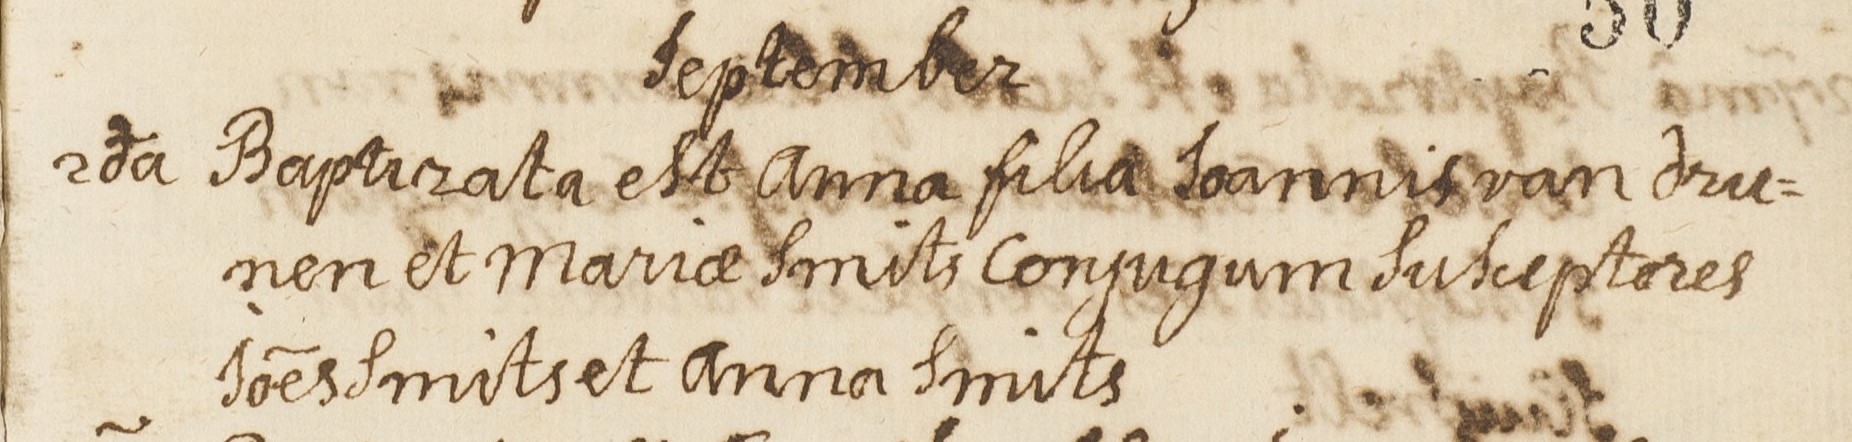 September
2da Baptizata est Anna filia Joannis van dru=
nen et Mariæ Smits Conjugum Susceptores
Jo͞es Smits et Anna Smits